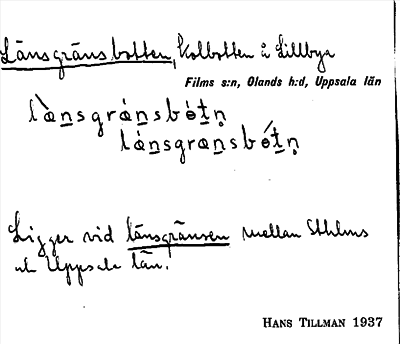 Länsgränsbotten, Kolbotten å Lillbya
Films s:n, Olands h:d, Uppsala län
lὰn̠sgrán̠sbòt̠n̥
lán̠sgran̠sbót̠n̥
Ligger vid länsgränsen mellan Sthlms
och Uppsala län.
HANS TILLMAN 1937